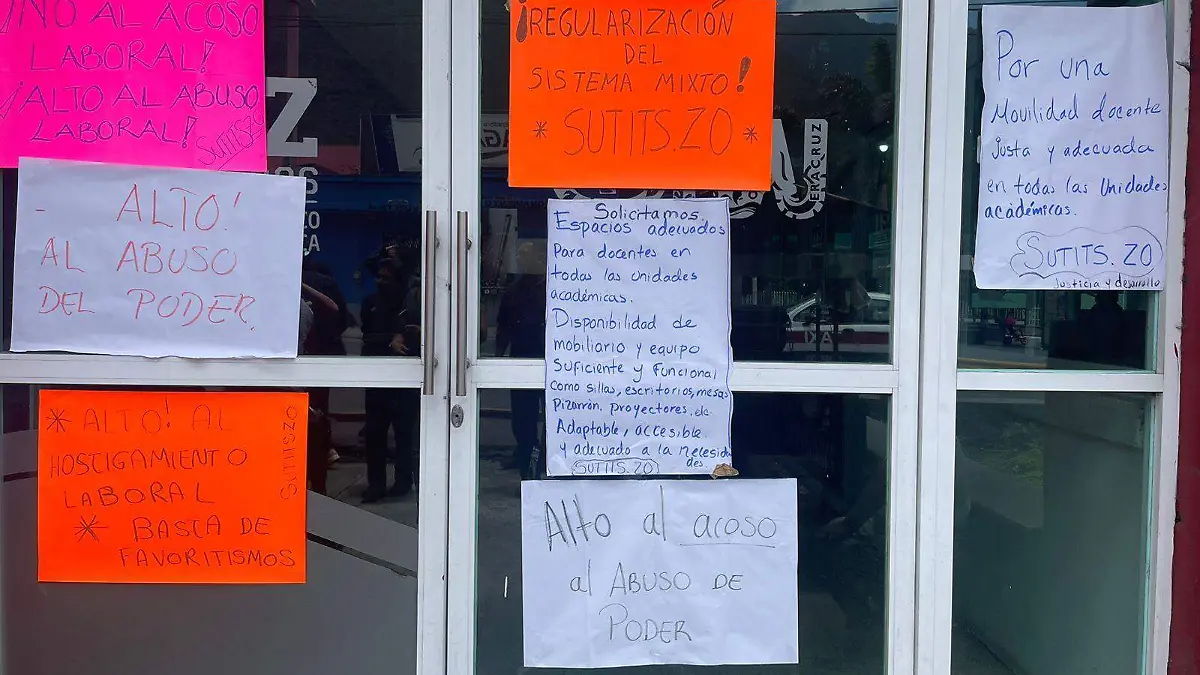 ¡NO AL ACOSO
LABORAL!
¡ALTO AL ABUSO
LABORAL!
SUTITS.ZO
- ALTO!
AL ABUSO
DEL PODER.
* ALTO! AL
HOSTIGAMIENTO
LABORAL
* BASTA DE
FAVORITISMOS
SUTITSZO
¡REGULARIZACIÓN
DEL
SISTEMA MIXTO!
* SUTITS.ZO *
Solicitamos
Espacios adecuados
Para docentes en
todas las unidades
académicas.
Disponibilidad de
mobiliario y equipo
Suficiente y Funcional
como sillas, escritorios, mesas
Pizarrón, proyectores, etc.
Adaptable, accesible
y adecuado a la Necesida
des.
SUTITS.ZO
Alto al acoso
al ABUSO DE
PODER
Por una
Movilidad docente
justa y adecuada
en todas las Unidades
académicas.
SUTITS.ZO
Justicia y desarrollo
Z
ERACRUZ